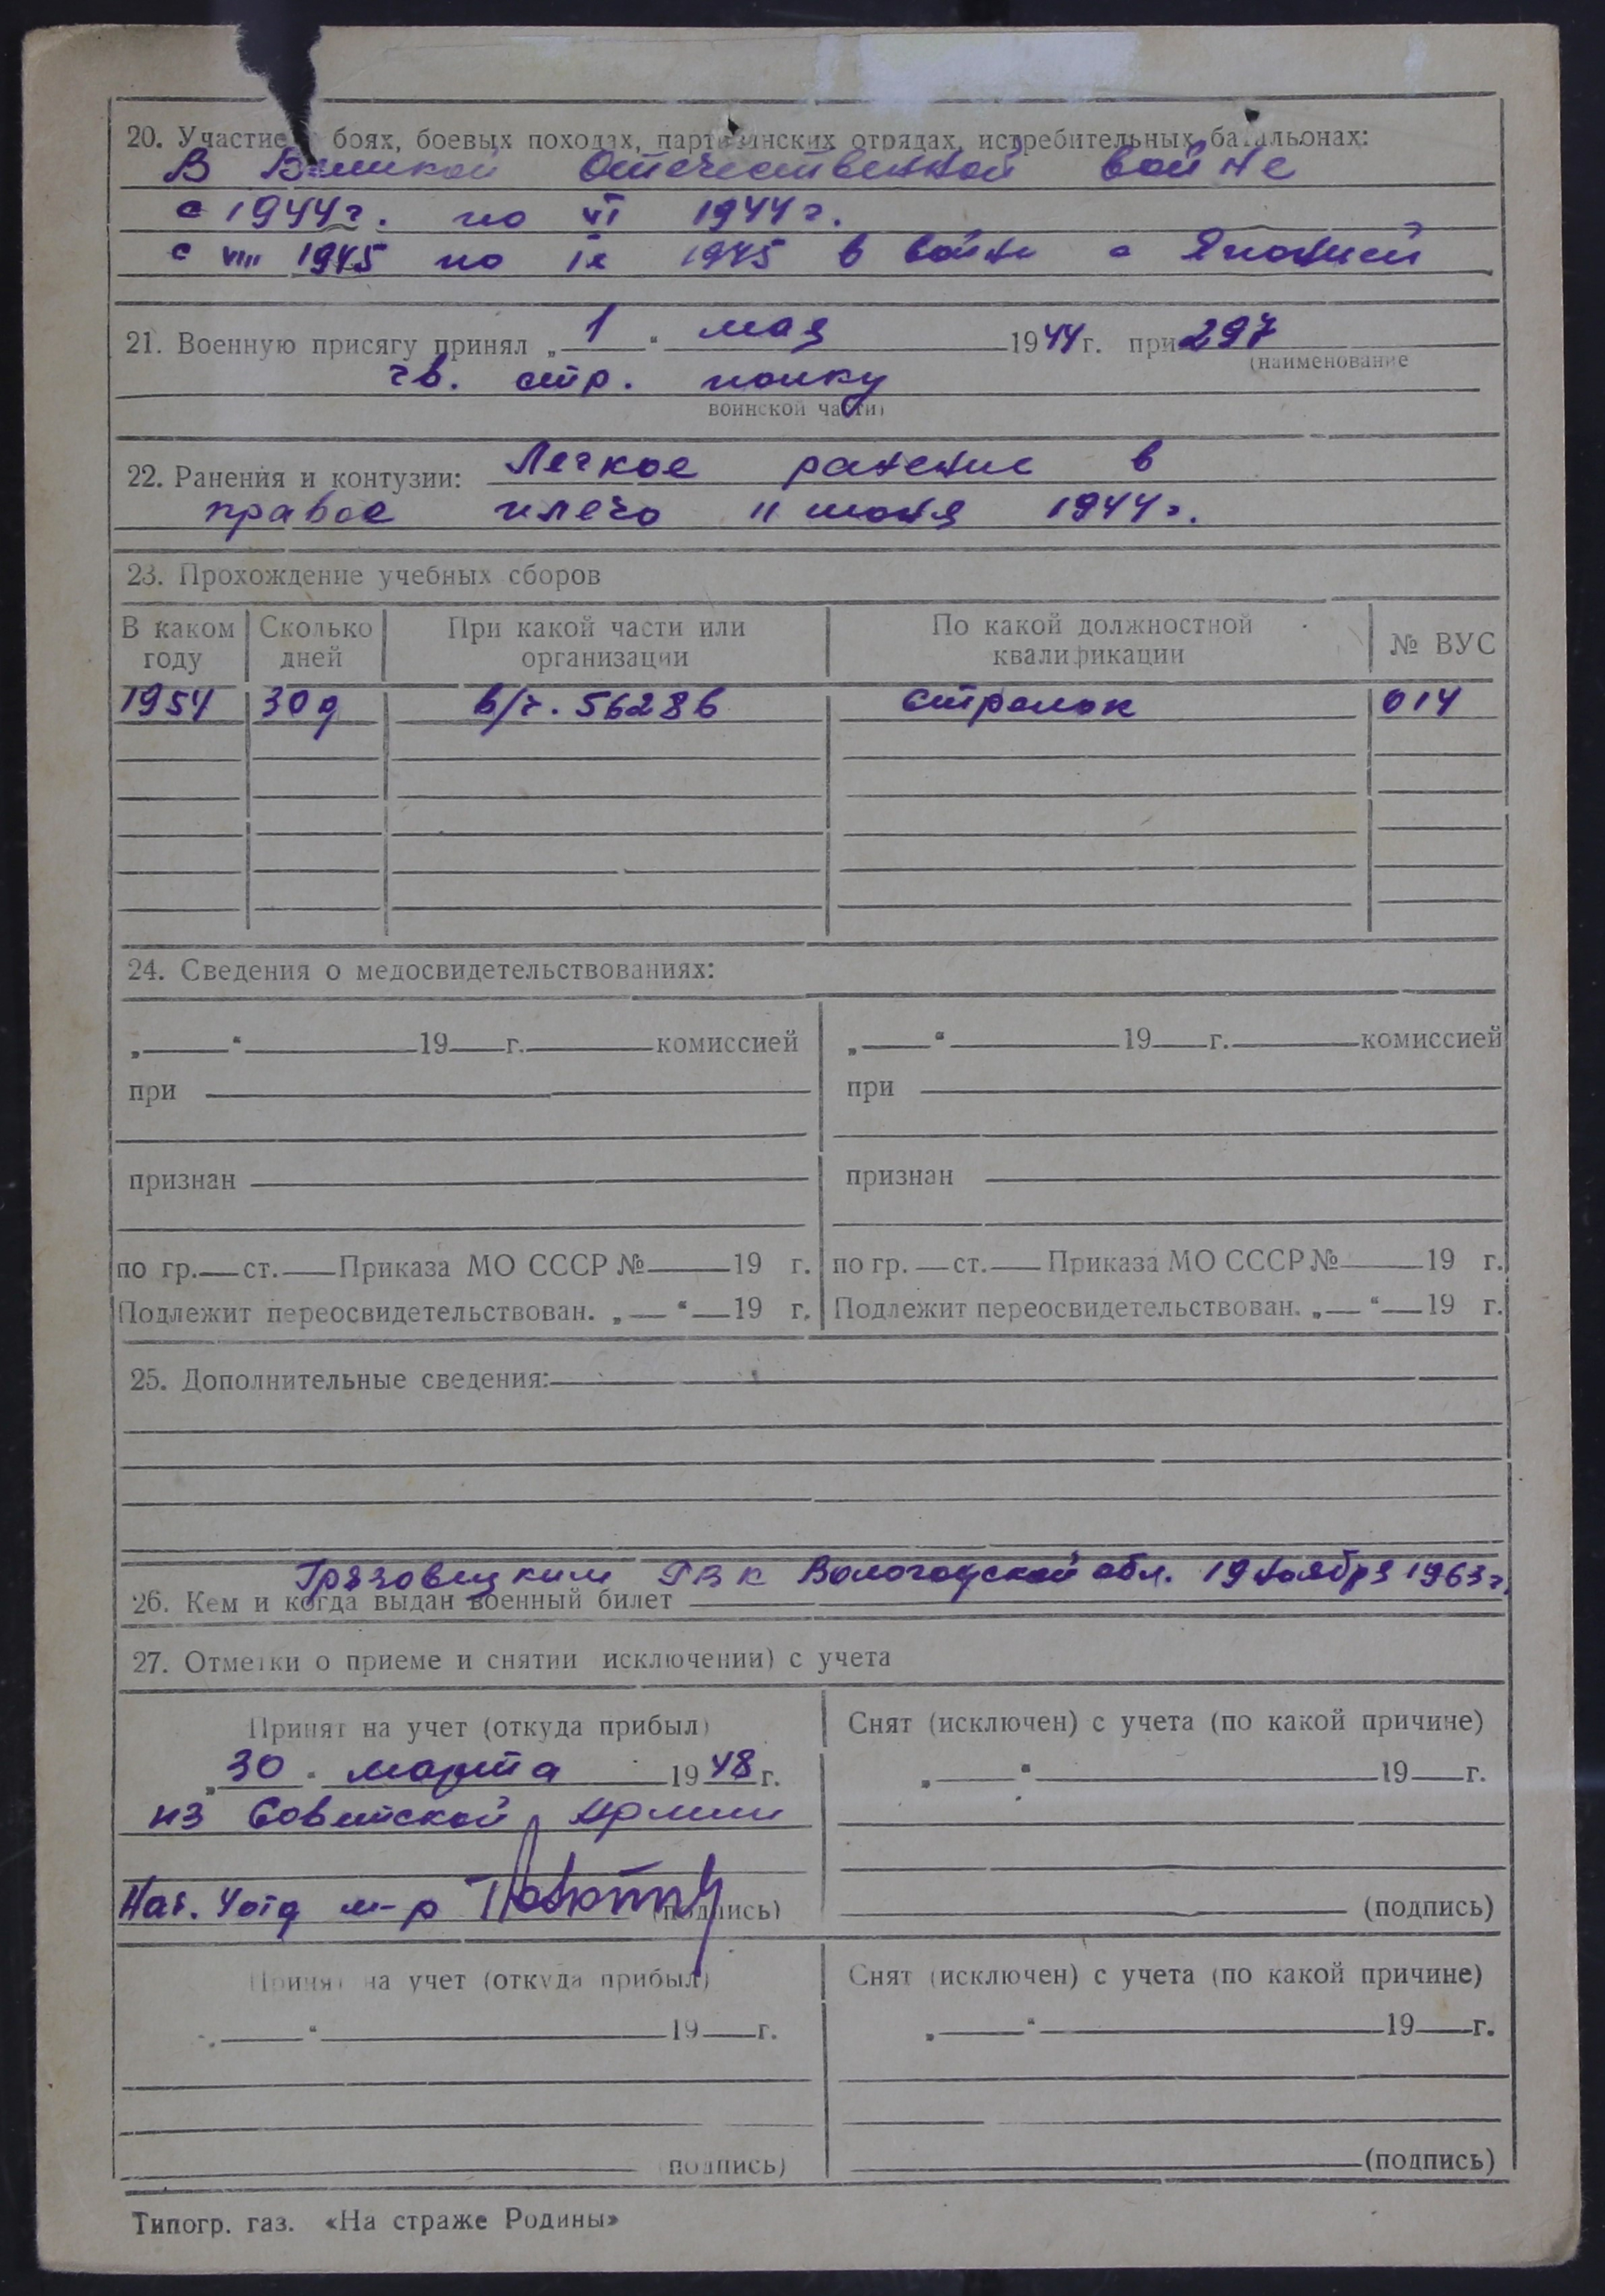 20. Участие боях, боевых походах, партизанских отрядах, истребительных батальонах:
В Великой Отечественной войне
с 1944г. по VI 1944г.
с VIII 1945 по IX 1945 в войне с Японией
21. Военную присягу принял „ 1 “ мая 1944г. при 297
(наименование
гв. стр. полку
воинской части)
22. Ранения и контузии: Легкое ранение в
правое плечо 11 июня 1944г.
23. Прохождение учебных сборов
В каком году Сколько дней При какой части или организации По какой должностной квалификации № ВУС
1954 30 д в/ч. 56286 стрелок 014
24. Сведения о медосвидетельствованиях:
„ “ 19 г. комиссией „ “ 19 г. комиссией
при при
признан признан
по гр. ст. Приказа МО СССР № 19 г. по гр. ст. Приказа МО СССР № 19 г.
Подлежит переосвидетельствован. „ “ 19 г. Подлежит переосвидетельствован. „ “ 19 г.
25. Дополнительные сведения:
Грязовецким РВК Вологодской обл. 19 ноября 1963г.
26. Кем и когда выдан военный билет
27. Отметки о приеме и снятии исключении) с учета
Принят на учет (откуда прибыл) Снят (исключен) с учета (по какой причине)
„ 30 “ марта 1948 г. „ “ 19 г.
из Советской Армии
Нач. 4 отд м-р (подпись) (подпись)
Принят на учет (откуда прибыл) Снят (исключен) с учета (по какой причине)
„ “ 19 г. „ “ 19 г.
(подпись) (подпись)
Типогр. газ. «На страже Родины»